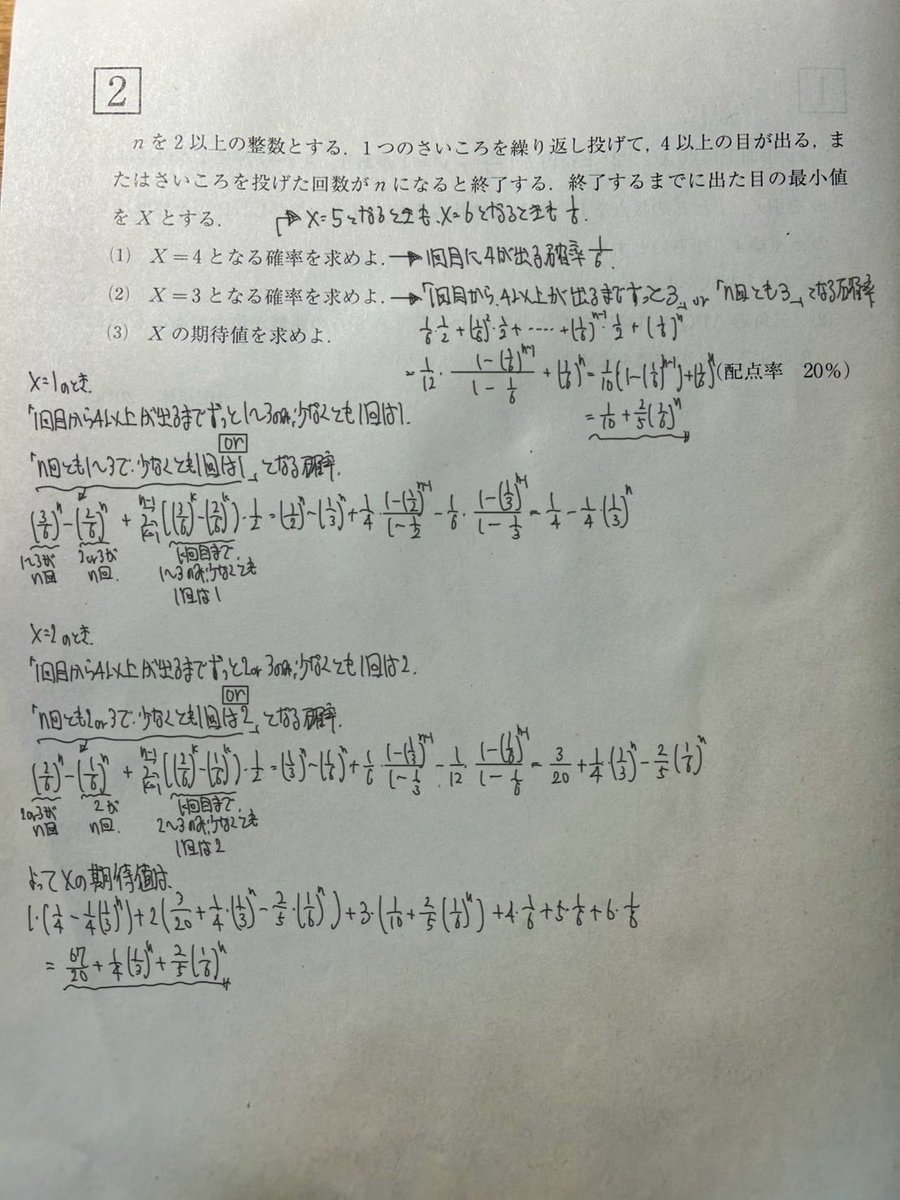 2
nを2以上の整数とする.1つのさいころを繰り返し投げて,4以上の目が出る,ま
たはさいころを投げた回数がnになると終了する.終了するまでに出た目の最小値
をXとする. → X=5となるときも、X=6となるときも 1/6.
(1) X=4となる確率を求めよ. → 1回目に4が出る確率 1/6
(2) X=3となる確率を求めよ. → 「1回目から、4以上が出るまでずっと3」or「n回とも3」となる確率
(3) Xの期待値を求めよ.
1/6・1/2+(1/6)^2・1/2+……+(1/6)^{n-1}・1/2+(1/6)^n
=1/12・(1-(1/6)^{n-1})/(1-1/6)+(1/6)^n=1/10(1-(1/6)^{n-1})+(1/6)^n
(配点率 20%)
=1/10+2/5(1/6)^n
X=1のとき
「1回目から4以上が出るまでずっと1~3のみ、少なくとも1回は1.
or
「n回とも1~3で、少なくとも1回は1」となる確率.
(3/6)^n-(2/6)^n+Σ_{k=1}^{n-1}((3/6)^k-(2/6)^k)・1/2=(1/2)^n-(1/3)^n+1/4・(1-(1/2)^{n-1})/(1-1/2)-1/6・(1-(1/3)^{n-1})/(1-1/3)=1/4-1/4(1/3)^n
1~3が n回
2or3が n回.
k回目まで、 1~3のみ、少なくとも 1回は1
X=2のとき.
「1回目から4以上が出るまでずっと2or3のみ、少なくとも1回は2.
or
「n回とも2or3で、少なくとも1回は2」となる確率.
(2/6)^n-(1/6)^n+Σ_{k=1}^{n-1}((2/6)^k-(1/6)^k)・1/2=(1/3)^n-(1/6)^n+1/6・(1-(1/3)^{n-1})/(1-1/3)-1/12・(1-(1/6)^{n-1})/(1-1/6)=3/20+1/4・(1/3)^n-2/5(1/6)^n
2or3が n回
2が n回.
k回目まで、 2~3のみ、少なくとも 1回は2
よってXの期待値は、
1・(1/4-1/4(1/3)^n)+2(3/20+1/4・(1/3)^n-2/5・(1/6)^n)+3・(1/10+2/5(1/6)^n)+4・1/6+5・1/6+6・1/6
=67/20+1/4(1/3)^n+2/5(1/6)^n